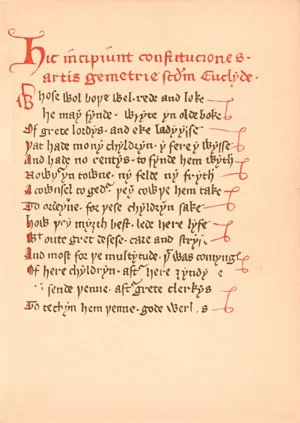 Hic incipiunt constituciones
artis gemetrie scdm Euclyde.
Whose wol boþe wel rede and loke
he may fynde wryte yn olde boke
Of grete lordys and eke ladyysse
Þat hade mony chyldryn y fere y wysse
And hade no rentys to fynde hem wyth
Nowþ yn towne ny felde ny fryth
A cownsel togedr þey cowþe hem take
To ordeyne for þese chyldryn sake
how þey myȝth best lede here lyfe
Wtoute gret desese care and stryf
And most for þe multytude þt was comyng
Of here chyldryn aft here ȝyndyng
sende þenne aftr grete clerkys
To techyn hem þenne gode werkys